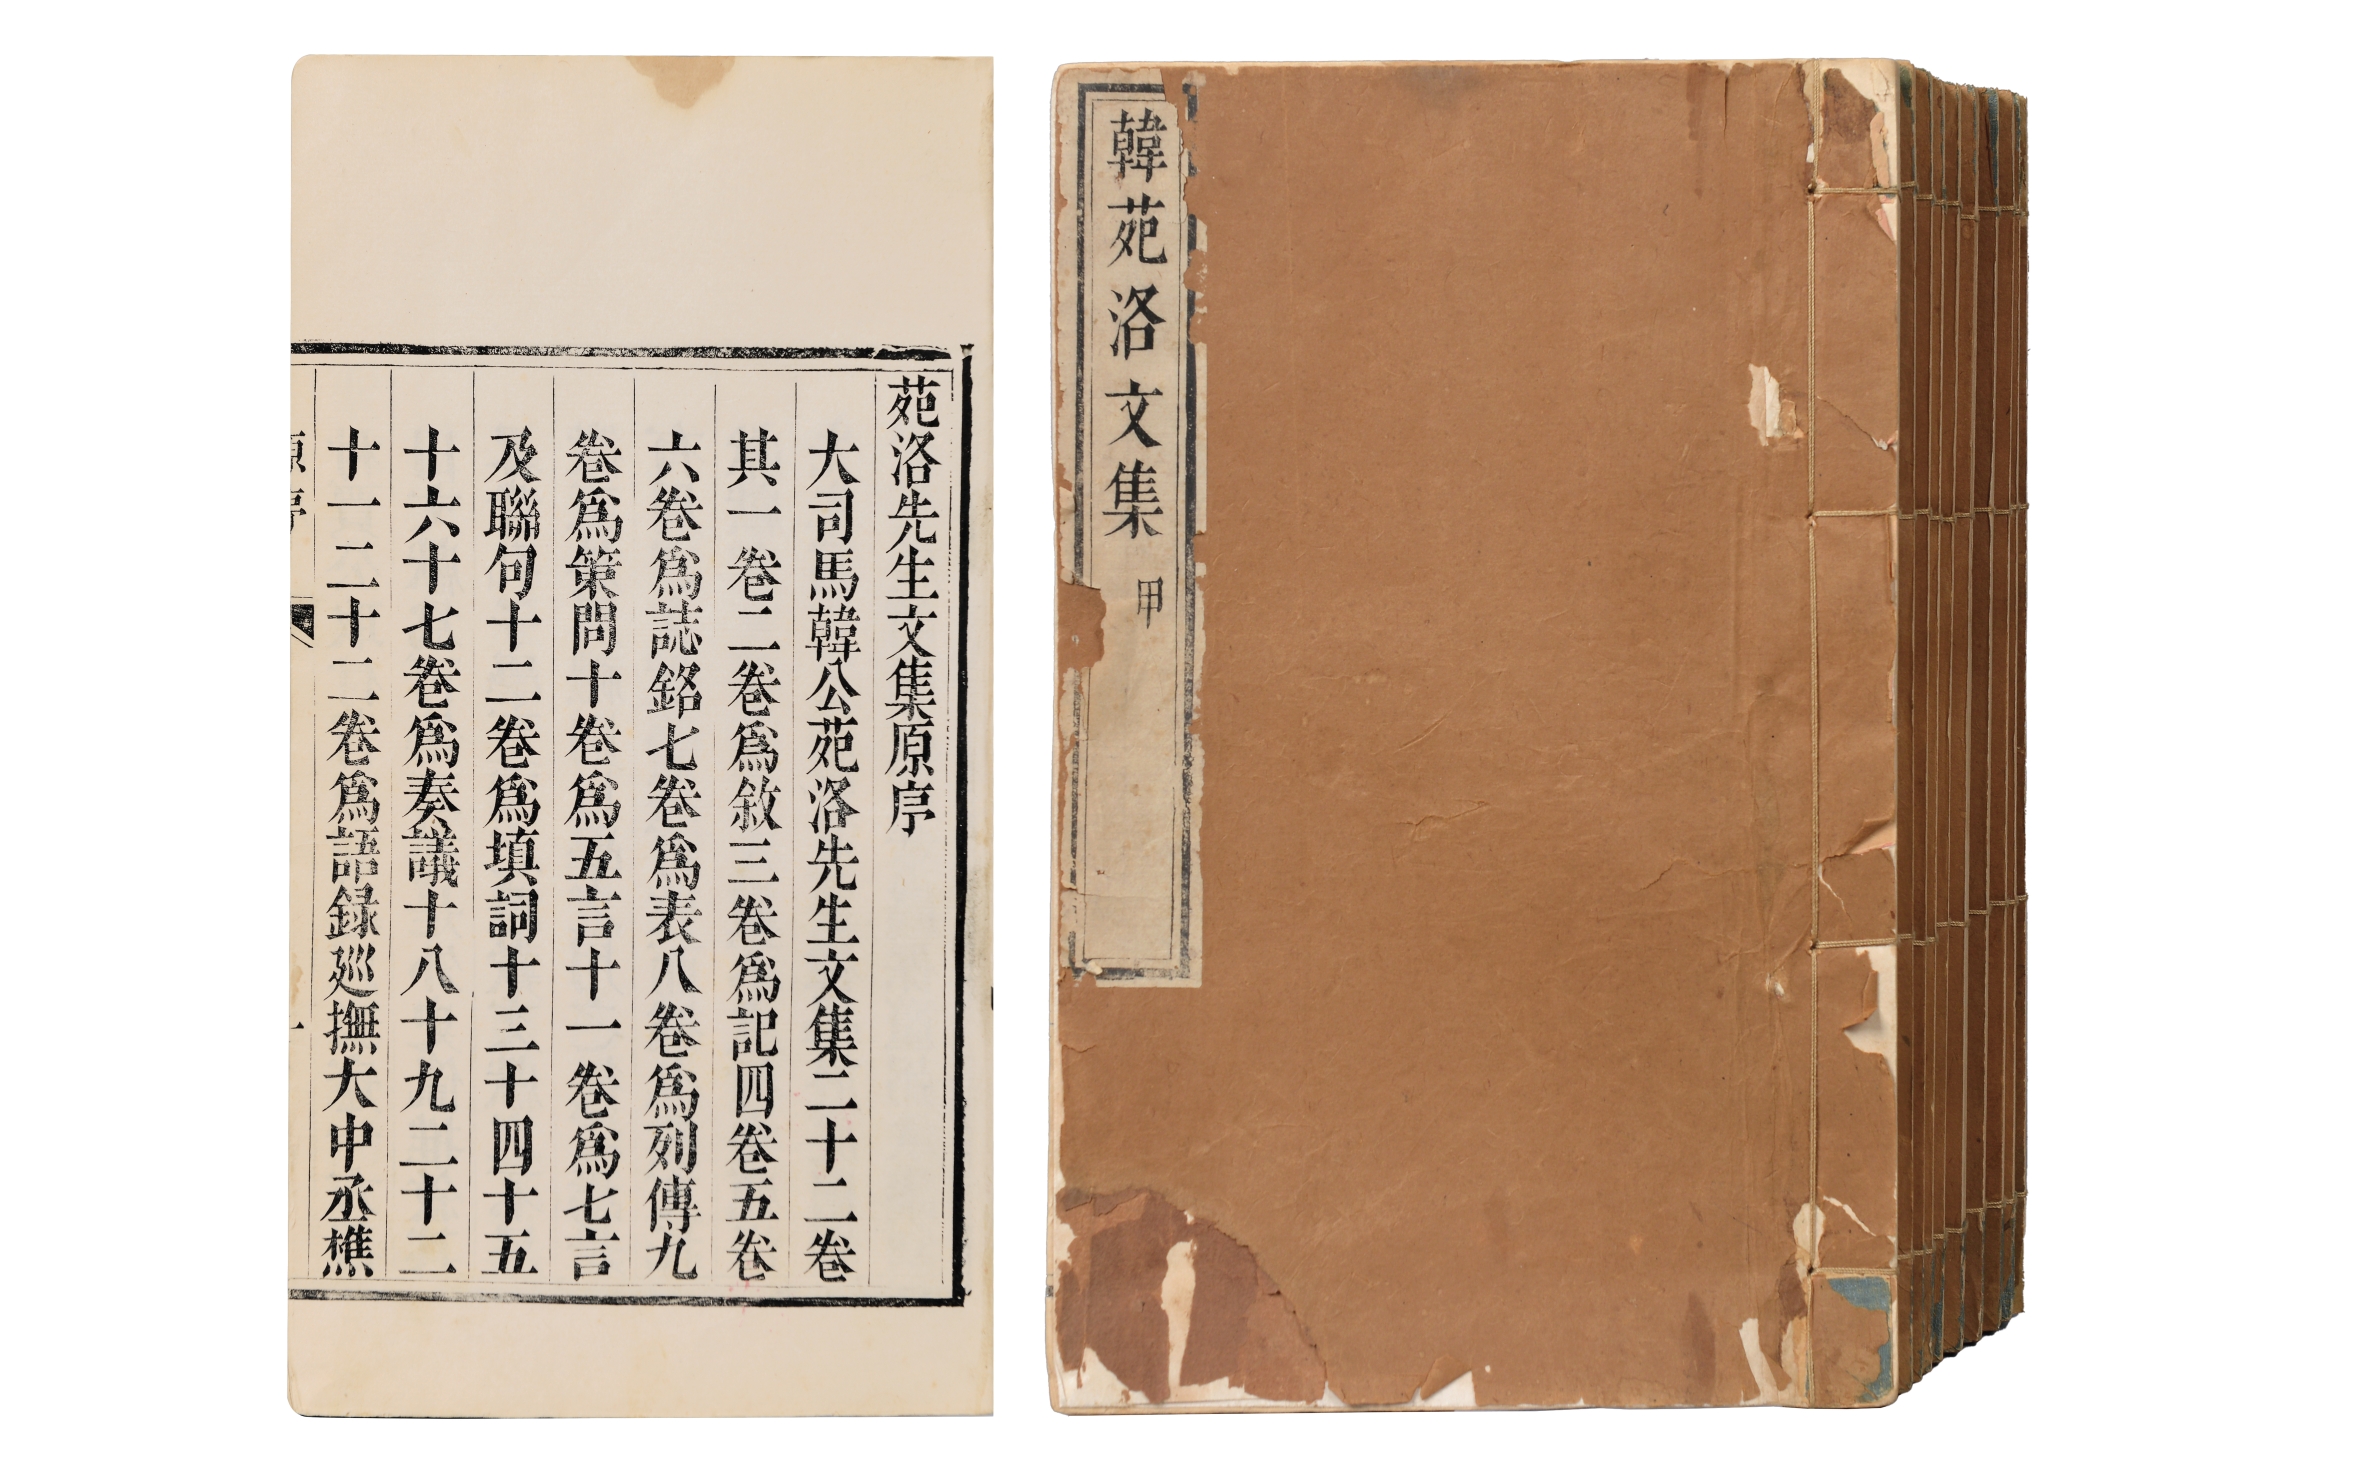 苑洛先生文集原序
大司馬韓公苑洛先生文集二十二卷
其一卷二卷爲敘三卷爲記四卷五卷
六卷爲誌銘七卷爲表八卷爲列傳九
卷爲策問十卷爲五言十一卷爲七言
及聯句十二卷爲填詞十三十四十五
十六十七卷爲奏議十八十九二十二
十一二十二卷爲語録廵撫大中丞樵
原序
一
韓苑洛文集 甲